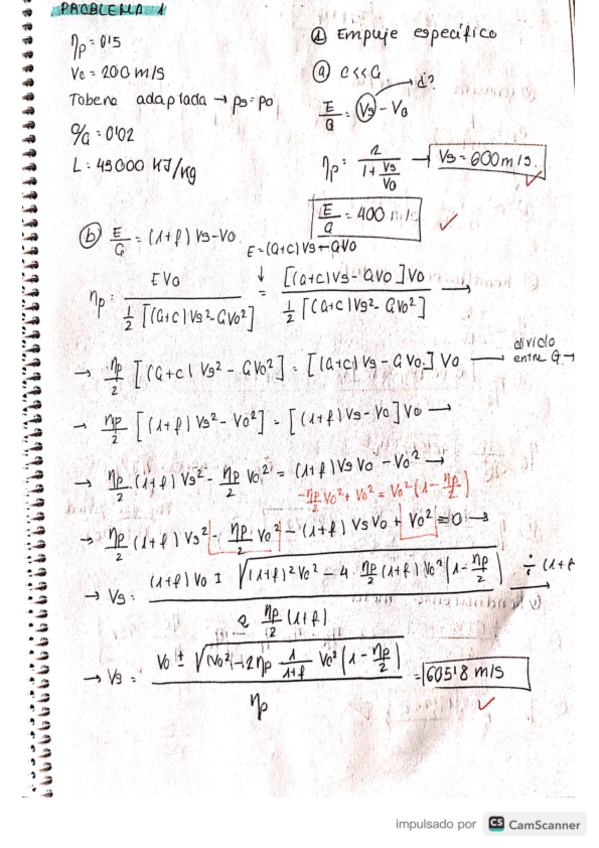 PROBLEMA 1
ηp = 0'5
V0 = 200 m/s
Tobera adaptada → ps = p0
c/G = 0'02
L = 45000 KJ/kg
① Empuje específico
ⓐ c << G
E/G = Vs - V0 → d?
ηp = 2/(1 + Vs/V0) → Vs = 600 m/s.
E/G = 400 m/s
ⓑ E/G = (1+f) Vs - V0
E = (G+c) Vs - GV0
ηp = EV0 / (1/2 [(G+c) Vs² - GV0²]) = [(G+c) Vs - GV0] V0 / (1/2 [(G+c) Vs² - GV0²]) →
→ ηp/2 [(G+c) Vs² - GV0²] = [(G+c) Vs - GV0] V0 → divido entre G →
→ ηp/2 [(1+f) Vs² - V0²] = [(1+f) Vs - V0] V0 →
→ ηp/2 (1+f) Vs² - ηp/2 V0² = (1+f) Vs V0 - V0² →
-ηp/2 V0² + V0² = V0² (1 - ηp/2)
→ ηp/2 (1+f) Vs² - ηp/2 V0² - (1+f) Vs V0 + V0² = 0 →
→ Vs = ((1+f) V0 ± √((1+f)² V0² - 4 · ηp/2 (1+f) V0² (1 - ηp/2))) / (2 ηp/2 (1+f)) ÷ (1+f →
→ Vs = (V0 ± √(V0² - 2ηp 1/(1+f) V0² (1 - ηp/2))) / ηp = 605'8 m/s
impulsado por CS CamScanner